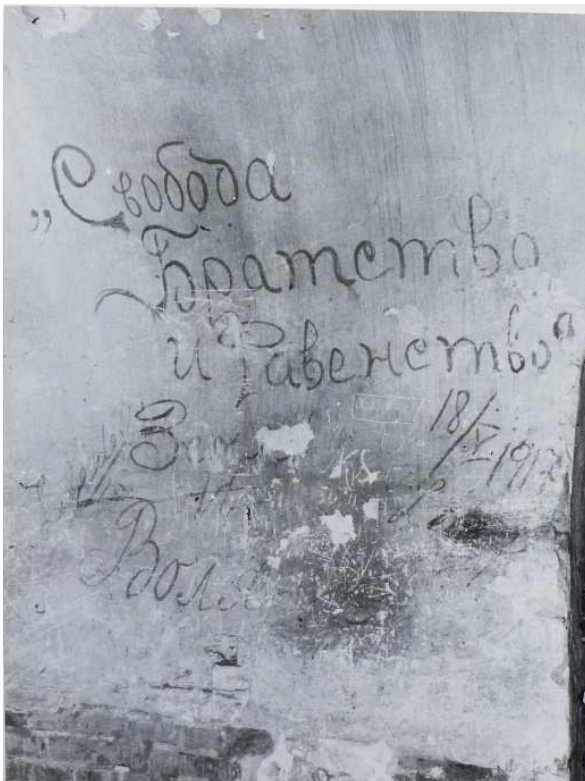 „Свобода
Братство
и Равенство“
18/V 1917
Воля